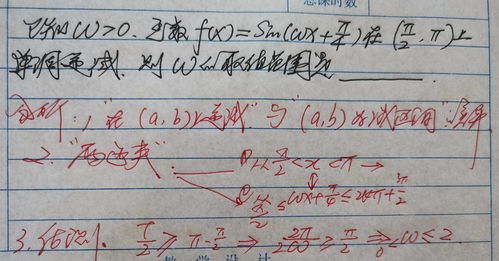 已知ω>0,函数f(x)=Sin(ωx+π/4)在(π/2,π)上
单调递减.则ω的取值范围是______.
分析:1,"在(a,b)上递减"与"(a,b)为减区间"
2."两边夹" ①从π/2<x<π→
② π/2≤ωx+π/4≤2kπ+3π/2
3.估测. T/2≥π-π/2⇒2π/2ω≥π/2⇒0<ω≤2.